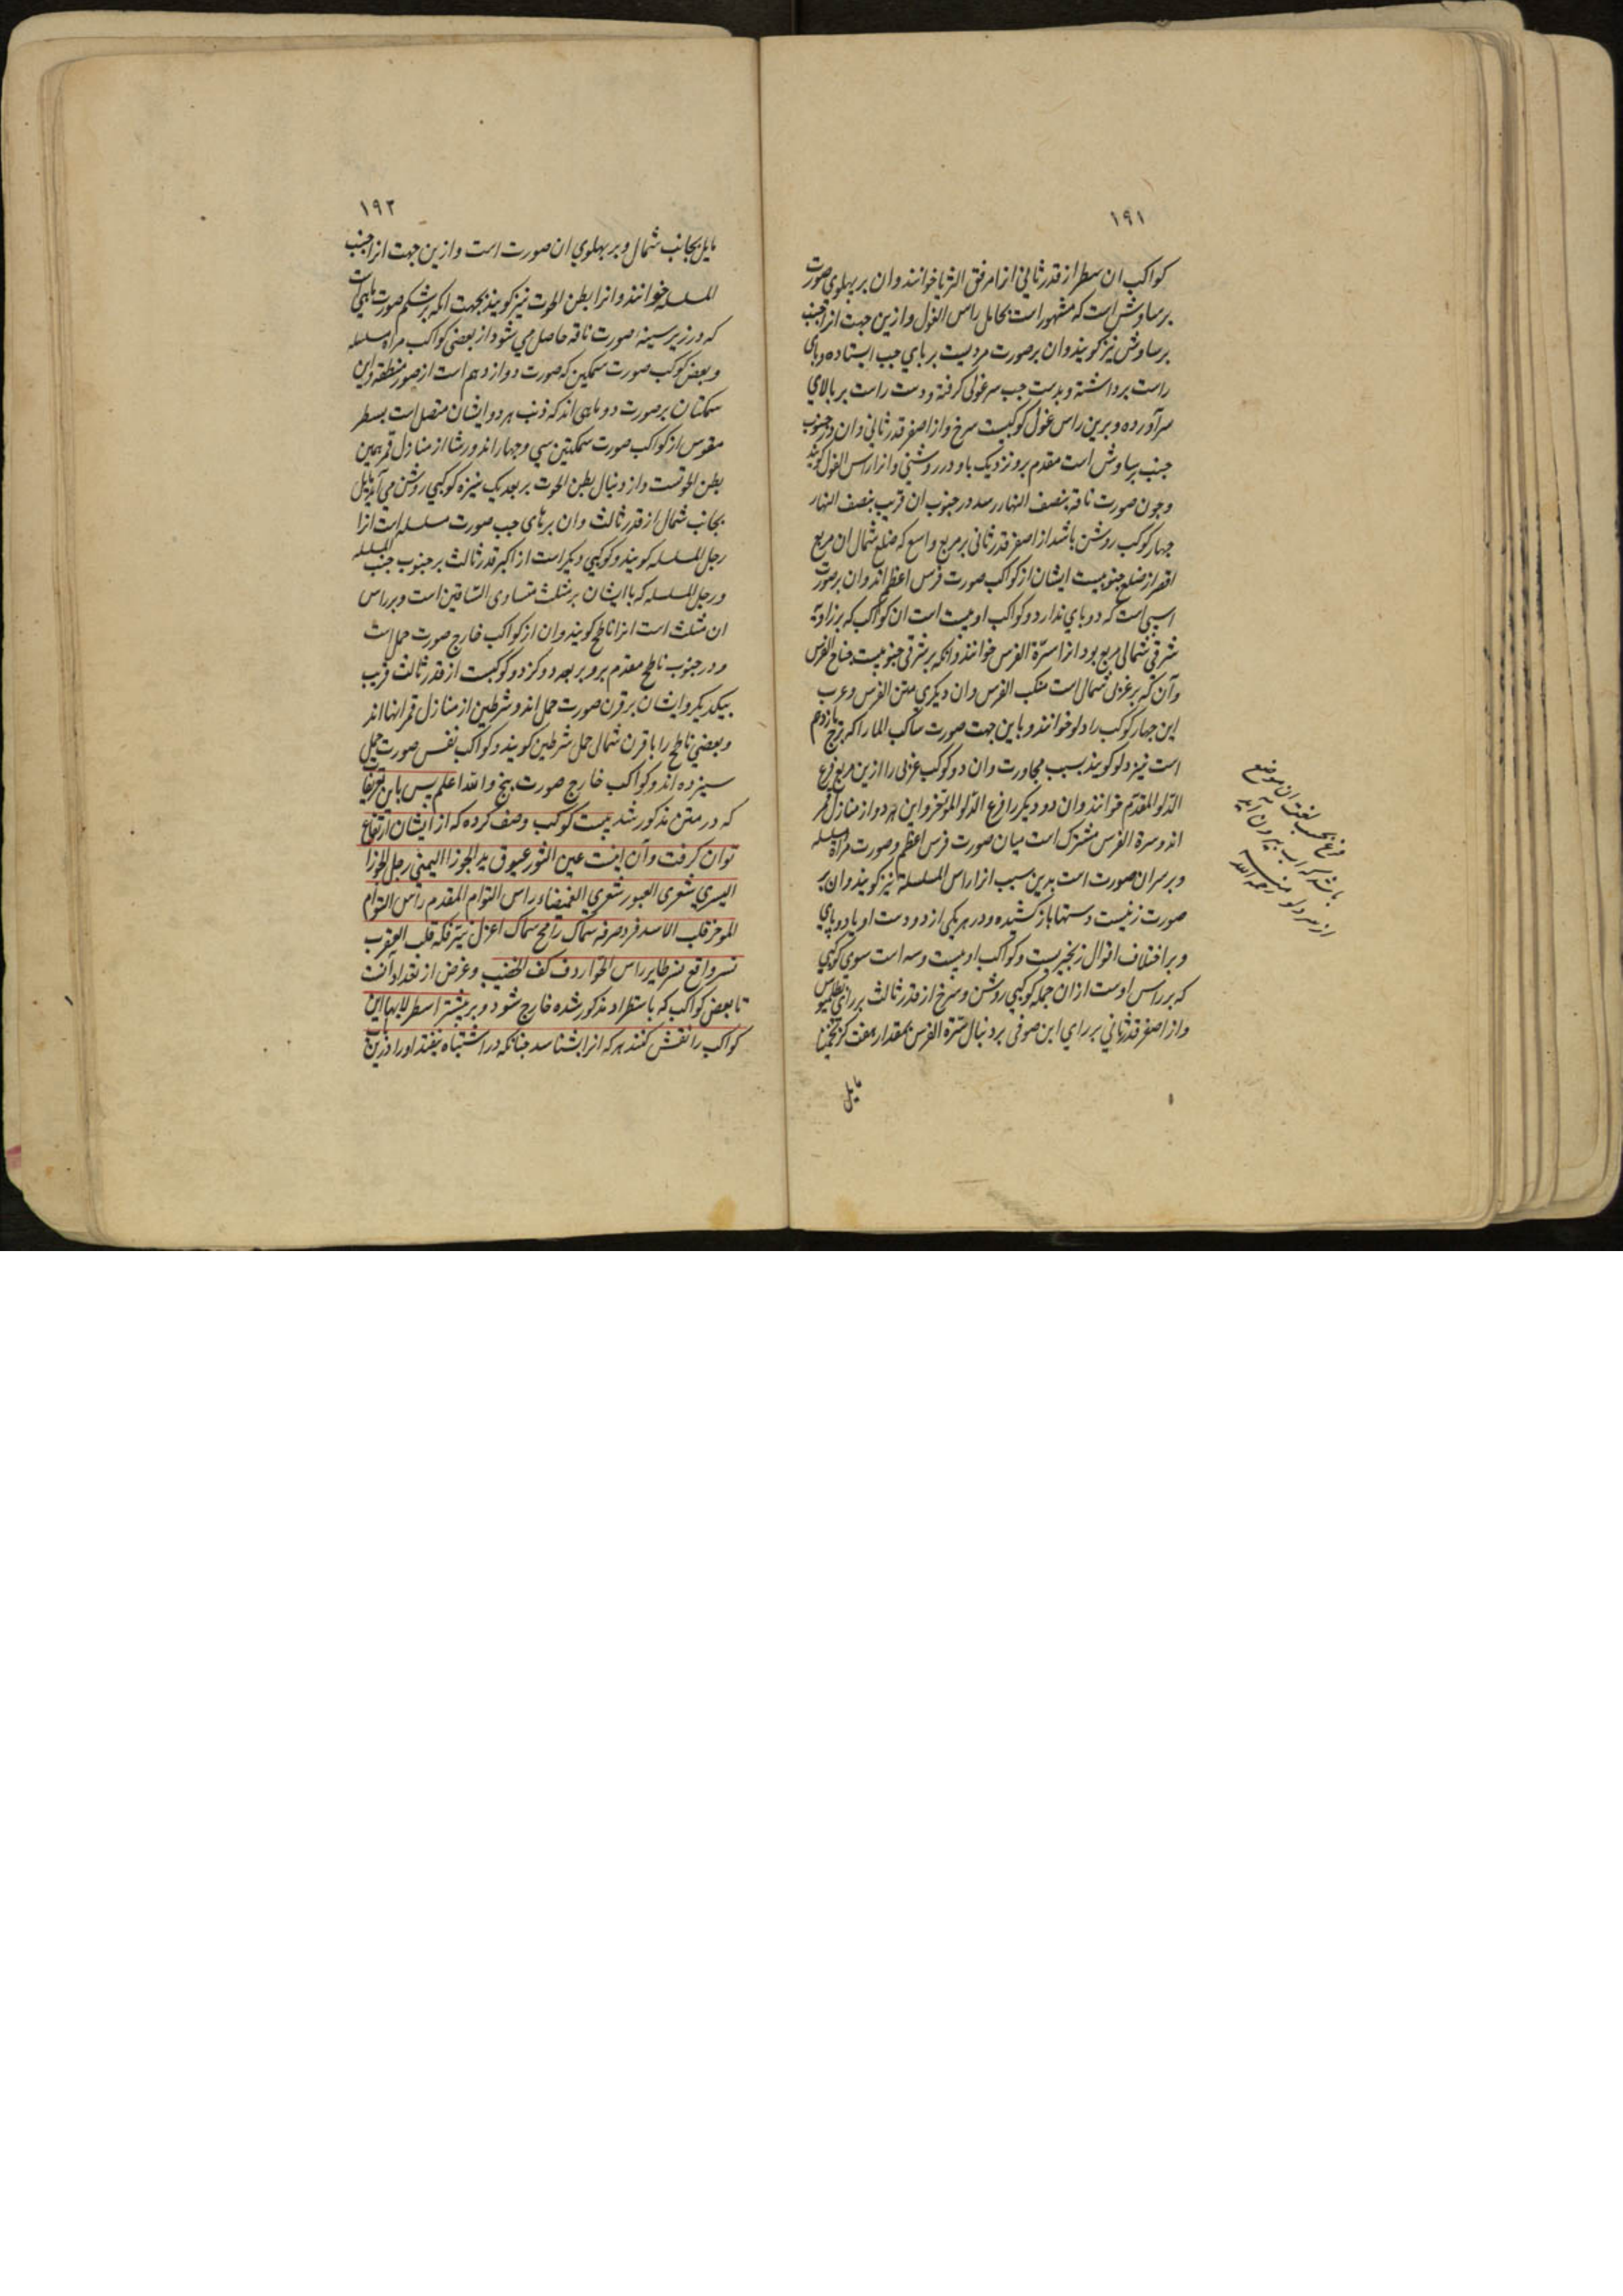 ١٩١
کواکب ان سطر از قدر ثانی انرا مرفق الثریا خوانند وان بر پهلوی صورت
برساوش است که مشهور است بحامل راس الغول وازین جهت انرا جنب
برساوش نیز کویند وان بر صورت مردیست بر پای چپ ایستاده و پای
راست برداشته و بدست چپ سر غولی کرفته و دست راست بر بالای
سر آورده و برین راس غول کوکبیست سرخ و از اصغر قدر ثانی وان در جنوب
جنب برساوش است مقدم برو نزدیک باو در روشنی وانرا راس الغول کویند
و چون صورت ناقه بنصف النهار رسد در جنوب ان قریب بنصف النهار
چهار کوکب روشن باشد از اصغر قدر ثانی بر مربع واسع که ضلع شمال ان مربع
اقصر از ضلع جنوبیست ایشان از کواکب صورت فرس اعظم اند وان بر صورت
اسبی است که دو پای ندارد و کواکب او بیست است ان کواکب که بر زاویه
شرقی شمالی مربع بود انرا سرّة الفرس خوانند وانکه بر شرقی جنوبیست جناح الفرس
وآن که بر غربی شمال است منکب الفرس وان دیکری متن الفرس و عرب
این چهار کوکب را دلو خوانند و باین جهت صورت ساکب الما را که برج یازدهم
است نیز دلو کویند بسبب مجاورت وان دو کوکب غربی را ازین مربع فرغ
الدّلو المقدّم خوانند وان دو دیکر را فرغ الدّلو المؤخر واین هر دو از منازل قمر
اند و سرة الفرس مشترک است میان صورت فرس اعظم و صورت مراة مسلسله
و بر سران صورت است بدین سبب انرا راس المسلسلة نیز کویند وان بر
صورت زنیست دستها باز کشیده و در هر یکی از دو دست او یا دو پای
و بر اختلاف اقوال زنجیریست و کواکب او بیست وسه است سوی کوکبی
که بر راس اوست از ان جمله کوکبی روشن و سرخ از قدر ثالث بر رای بطلمیوس
و از اصغر قدر ثانی بر رای ابن صوفی بر دنبال سرّة الفرس بمقدار هفت کز تخمینا
مایل
فرغ بحسب لغت ان موضع
باشد که اب بیرون آید
از سر دلو منه رحمه الله
١٩٢
مایل بجانب شمال و بر پهلوی ان صورت است وازین جهت انرا جنب
المسلسله خوانند وانرا بطن الحوت نیز کویند بجهت انکه بر شکم صورت ماهی است
که در زیر سینه صورت ناقه حاصل می شود از بعضی کواکب مراة مسلسله
و بعض کوکب صورت سمکین که صورت دوازدهم است از صور منطقه واین
سمکتان بر صورت دو ماهی اند که ذنب هر دو ایشان متصل است بسطر
مقوس از کواکب صورت سمکتین سی و چهار اند و رشا از منازل قمر همین
بطن الحوتست و از دنبال بطن الحوت بر بعد یک نیزه کوکبی روشن می آید مایل
بجانب شمال از قدر ثالث وان بر پای چپ صورت مسلسله است انرا
رجل المسلسله کویند و کوکبی دیکر است از اکبر قدر ثالث بر جنوب جنب المسلسله
و رجل المسلسله که با ایشان بر مثلث متساوی الساقین است و بر راس
ان مثلث است انرا ناطح کویند وان از کواکب خارج صورت حمل است
و در جنوب ناطح مقدم برو بر بعد دو کز دو کوکبست از قدر ثالث قریب
بیکدیکر وایشان بر قرن صورت حمل اند و شرطین از منازل قمر اینها اند
و بعضی ناطح را با قرن شمالی حمل شرطین کویند و کواکب نفس صورت حمل
سیزده اند و کواکب خارج صورت پنج والله اعلم پس باین تعریفات
که در متن مذکور شد بیست کوکب وصف کرده که از ایشان ارتفاع
توان کرفت وآن اینست عین الثور عیوق ید الجوزا الیمنی رجل الجوزا
الیسری شعری العبور شعری الغمیصاء راس التوام المقدم راس التوام
الموخر قلب الاسد فرد صرفه سماک رامح سماک اعزل نیّر فکه قلب العقرب
نسر واقع نسر طایر راس الحوا ردف کف الخضیب و غرض از تعداد آنست
تا بعض کواکب که باستطراد مذکور شده خارج شود و بر بیشتر اسطرلابها این
کواکب را نقش کنند هر که انرا بشناسد چنانکه در اشتباه نیفتد او را درین باب